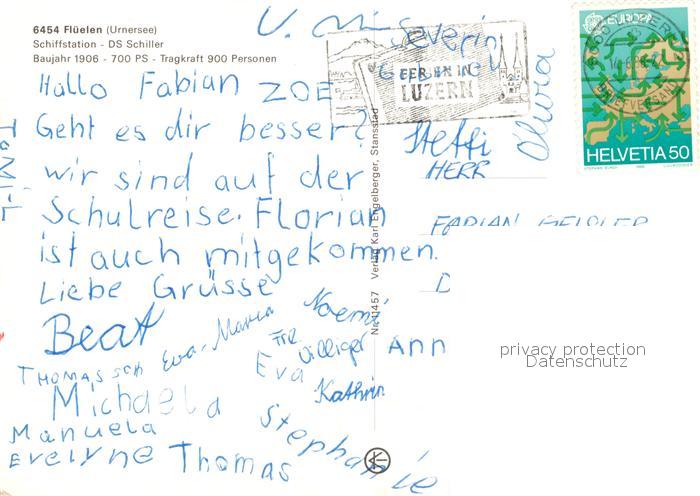 6454 Flüelen (Urnersee)
Schiffstation - DS Schiller
Baujahr 1906 - 700 PS - Tragkraft 900 Personen
Severin
FERIEN IN
LUZERN
EUROPA
HELVETIA 50
Hallo Fabian ZOE
Geht es dir besser?
wir sind auf der
Schulreise. Florian
ist auch mitgekommen.
Liebe Grüsse
Beat
Steffi
Olivia
HERR
FABIAN
Noemi
Eva-Maria
Frl
Villiger
Ann
Eva
Kathrin
THOMAS SCH
Michaela
Manuela
Stephanie
Evelyne Thomas
Nr. 11457 Verlag Karl Engelberger, Stansstad
privacy protection
Datenschutz